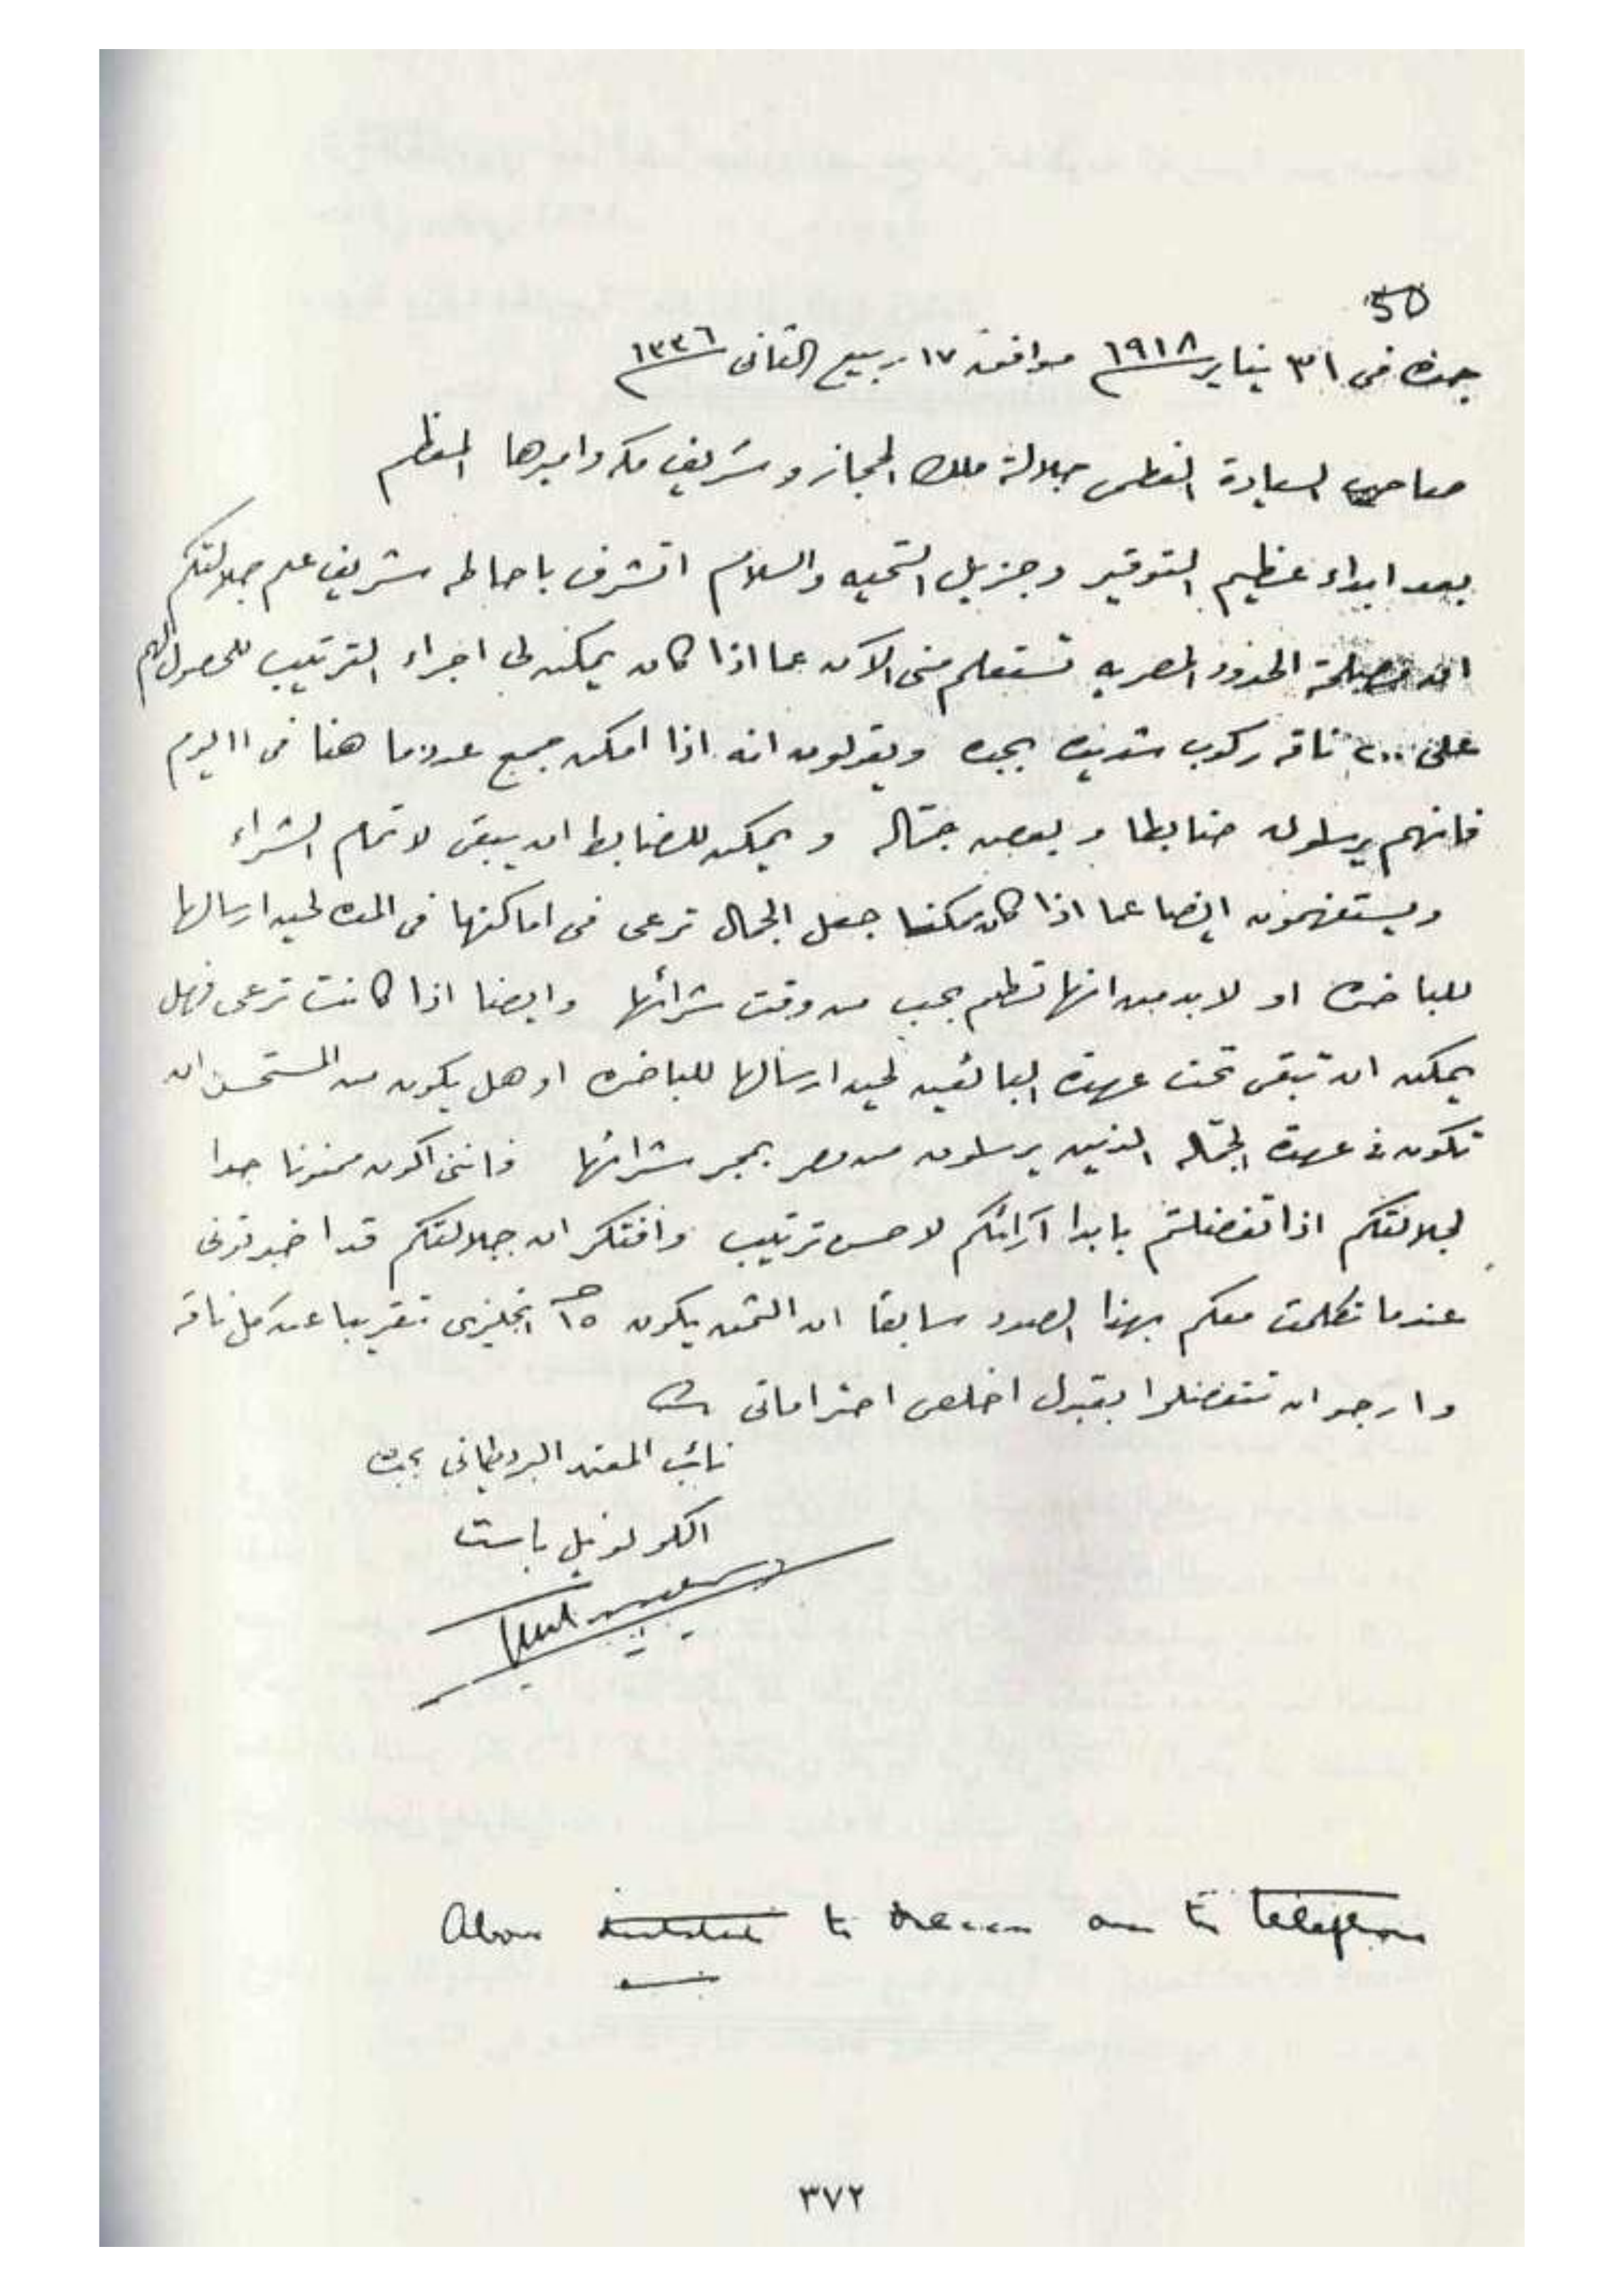 50
جده فى ٣١ يناير ١٩١٨ موافق ١٧ ربيع الثانى ١٣٣٦
صاحب السيادة العظمى جلالة ملك الحجاز وشريف مكه واميرها المعظم
بعد ابداء عظيم التوقير وجزيل التحيه والسلام اتشرف باحاطه شريف علم جلالتكم
ان مصلحة الحدود المصريه تستعلم منى الآن عما اذا كان يمكن لى اجراء الترتيب للحصول لهم
على ٢٠٠ ناقه ركوب شديده بجده ويقولون انه اذا امكن جمع عدد ما هنا فى اليوم
فانهم يرسلون ضابطا وبعض جماله ويمكن للضابط ان يبقى لاتمام الشراء
ويستفهمون ايضا عما اذا كان ممكنا جعل الجمال ترعى فى اماكنها فى المده لحين ارسالها
للباخره او لا بد من انها تطعم بحب من وقت شرائها وايضا اذا كانت ترعى فهل
يمكن ان تبقى تحت عهدة البائعين لحين ارسالها للباخره او هل يكون من المستحسن ان
تكون فى عهدة الجماله الذين يرسلون من مصر بمجر شرائها فاننى اكون ممنونا جدا
لجلالتكم اذا تفضلتم بابدا آرائكم لاحسن ترتيب وافتكر ان جلالتكم قد اخبرتونى
عندما تكلمت معكم بهذا الصدد سابقا ان الثمن يكون ١٥ انجليزى تقريبا عن كل ناقه
وارجو ان تتفضلوا بقبول اخلص احتراماتى
نائب المعتمد البريطانى بجده
الكولونيل باست
Above to over the telephone
٣٧٢